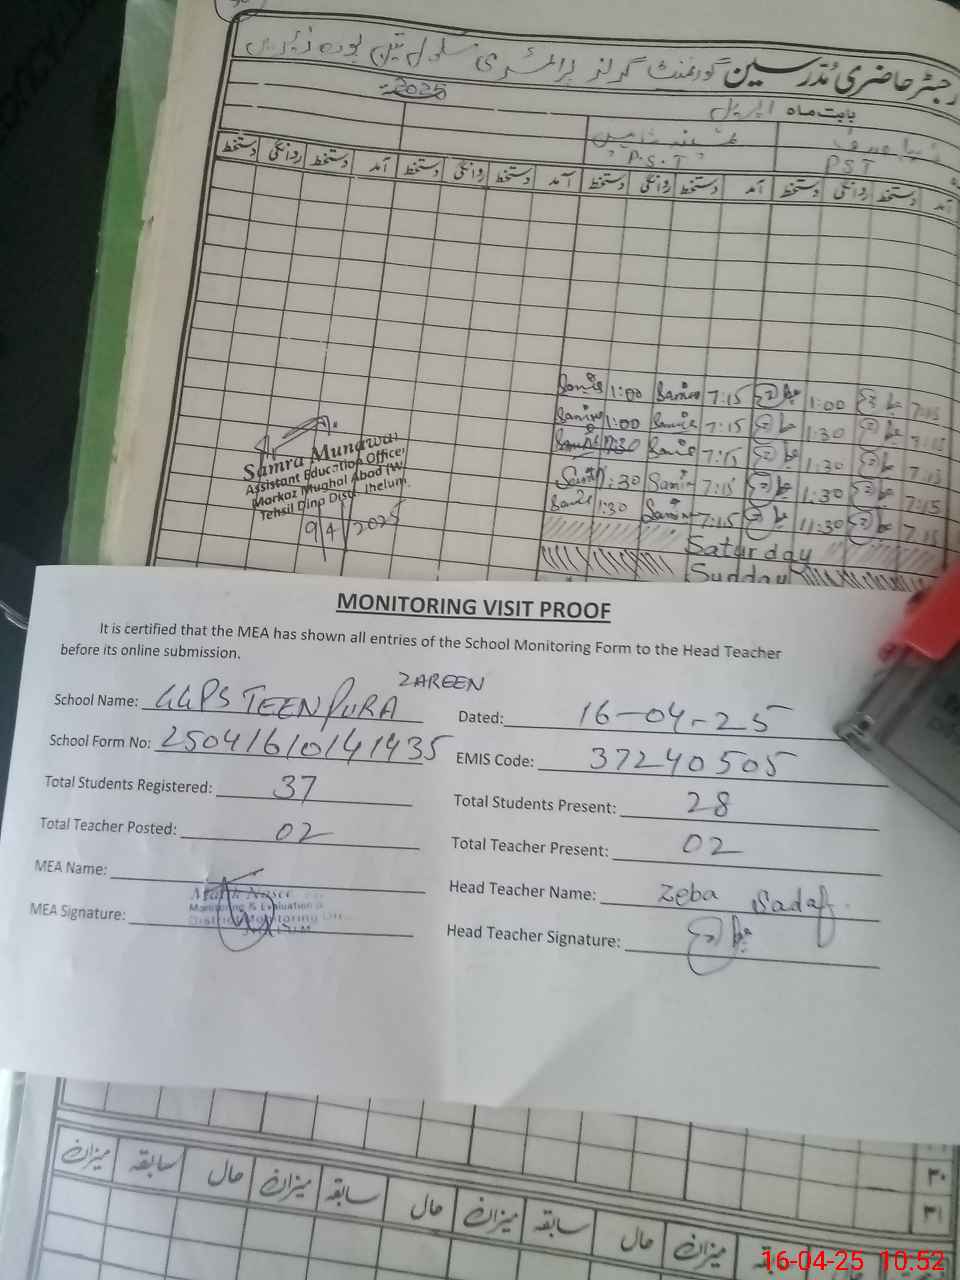 رجسٹر حاضری مُدرسین گورنمنٹ گرلز پرائمری سکول تین پورہ زرین
بابت ماہ اپریل 2025
P.S.T PST
دستخط روانگی دستخط آمد دستخط روانگی دستخط آمد دستخط روانگی دستخط آمد دستخط روانگی دستخط آمد
1:00 7:15 1:00 7:15
1:00 7:15 1:30 7:15
7:15 1:30 7:15
1:30 7:15 1:30 7:15
1:30 7:15 11:30 7:15
Saturday
Sunday
Samra Munawar
Assistant Education Officer
Markaz Mughal Abad (W)
Tehsil Dina Distt. Jhelum.
9/4/2025
MONITORING VISIT PROOF
It is certified that the MEA has shown all entries of the School Monitoring Form to the Head Teacher
before its online submission.
School Name: GGPS TEENPURA ZAREEN
Dated: 16-04-25
School Form No: 25041610141435
EMIS Code: 37240505
Total Students Registered: 37
Total Students Present: 28
Total Teacher Posted: 02
Total Teacher Present: 02
MEA Name:
Head Teacher Name: Zeba Sadaf
MEA Signature:
Monitoring & Evaluation
District Monitoring
Head Teacher Signature:
۳۰
۳۱
میزان سابقہ حال میزان سابقہ حال میزان سابقہ حال میزان سابقہ
16-04-25 10.52